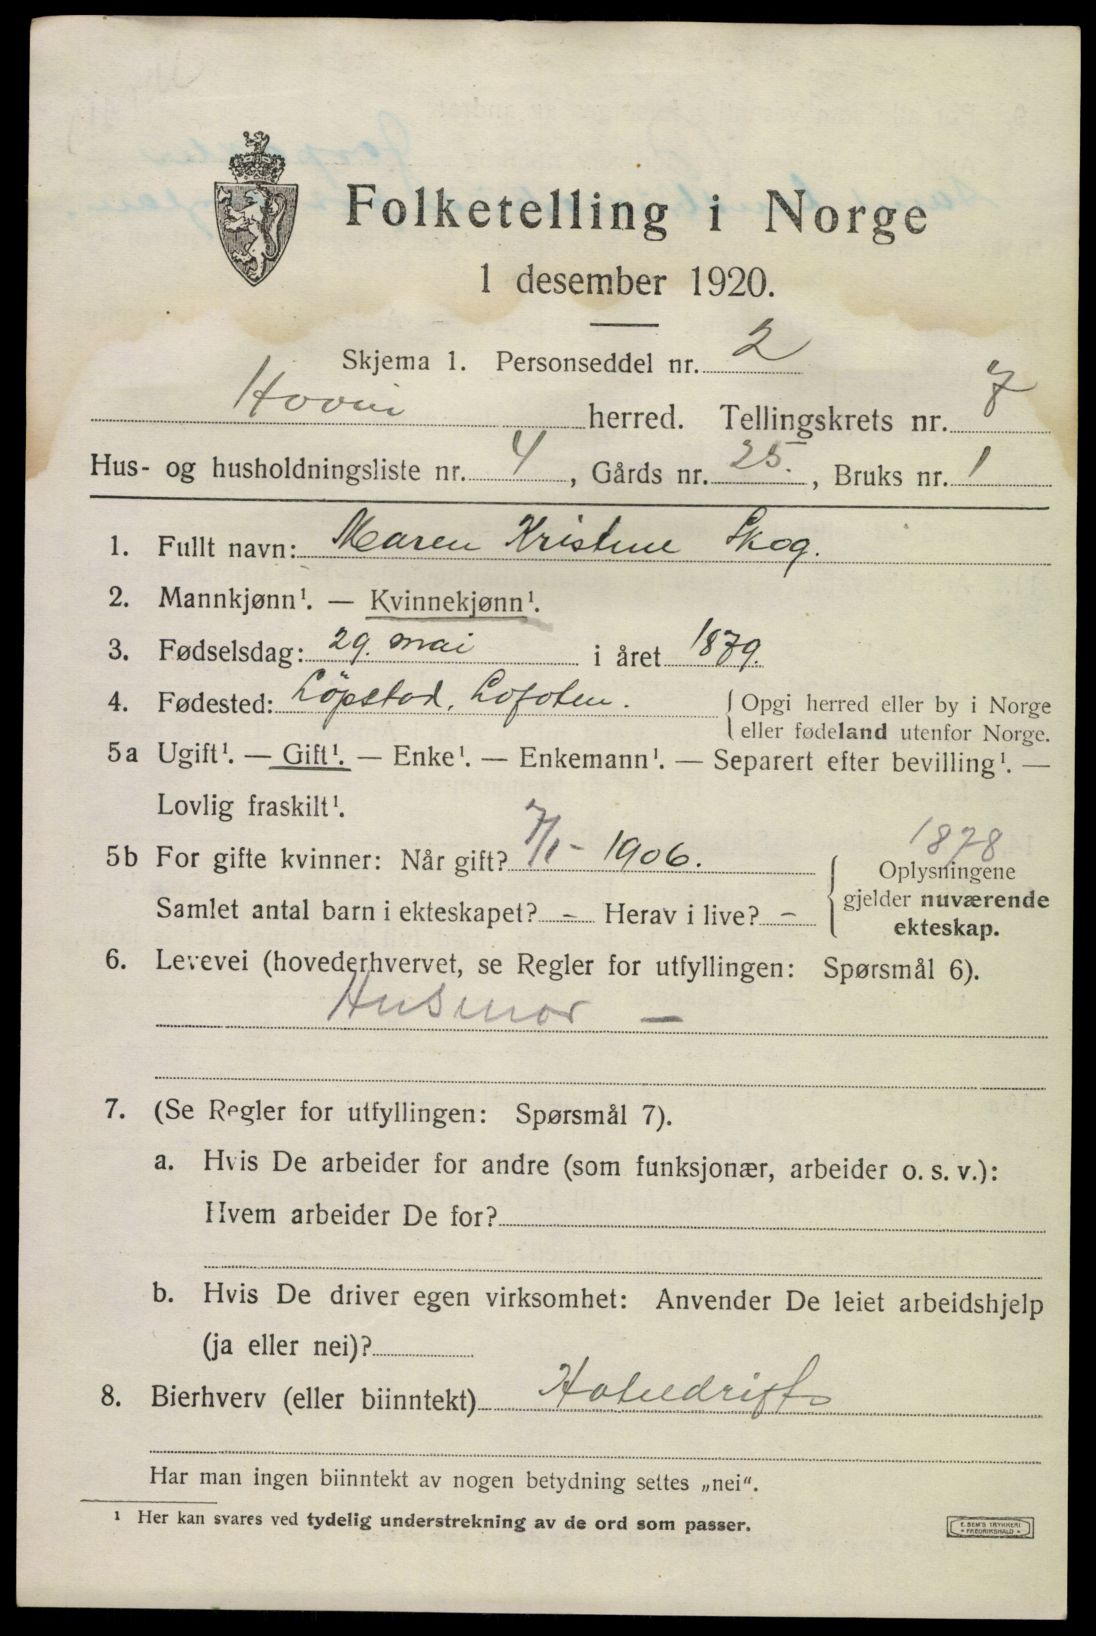 Folketelling i Norge
1 desember 1920.
Skjema 1. Personseddel nr. 2
Hovin herred. Tellingskrets nr. 7
Hus- og husholdningsliste nr. 4, Gårds nr. 25., Bruks nr. 1
1. Fullt navn: Maren Kristine Skog.
2. Mannkjønn¹. — Kvinnekjønn¹.
3. Fødselsdag: 29. mai i året 1879.
4. Fødested: Löpstad, Lofoten. { Opgi herred eller by i Norge
eller fødeland utenfor Norge.
5a Ugift¹. — Gift¹. — Enke¹. — Enkemann¹. — Separert efter bevilling¹. —
Lovlig fraskilt¹.
5b For gifte kvinner: Når gift? 7/1 - 1906. 1878
Oplysningene
Samlet antal barn i ekteskapet? – Herav i live? – gjelder nuværende
ekteskap.
6. Levevei (hovederhvervet, se Regler for utfyllingen: Spørsmål 6).
Husmor —
7. (Se Regler for utfyllingen: Spørsmål 7).
a. Hvis De arbeider for andre (som funksjonær, arbeider o. s. v.):
Hvem arbeider De for?
b. Hvis De driver egen virksomhet: Anvender De leiet arbeidshjelp
(ja eller nei)?
8. Bierhverv (eller biinntekt) Hoteldrift
Har man ingen biinntekt av nogen betydning settes „nei“.
¹ Her kan svares ved tydelig understrekning av de ord som passer.
E. SEM'S TRYKKERI
FREDRIKSHALD